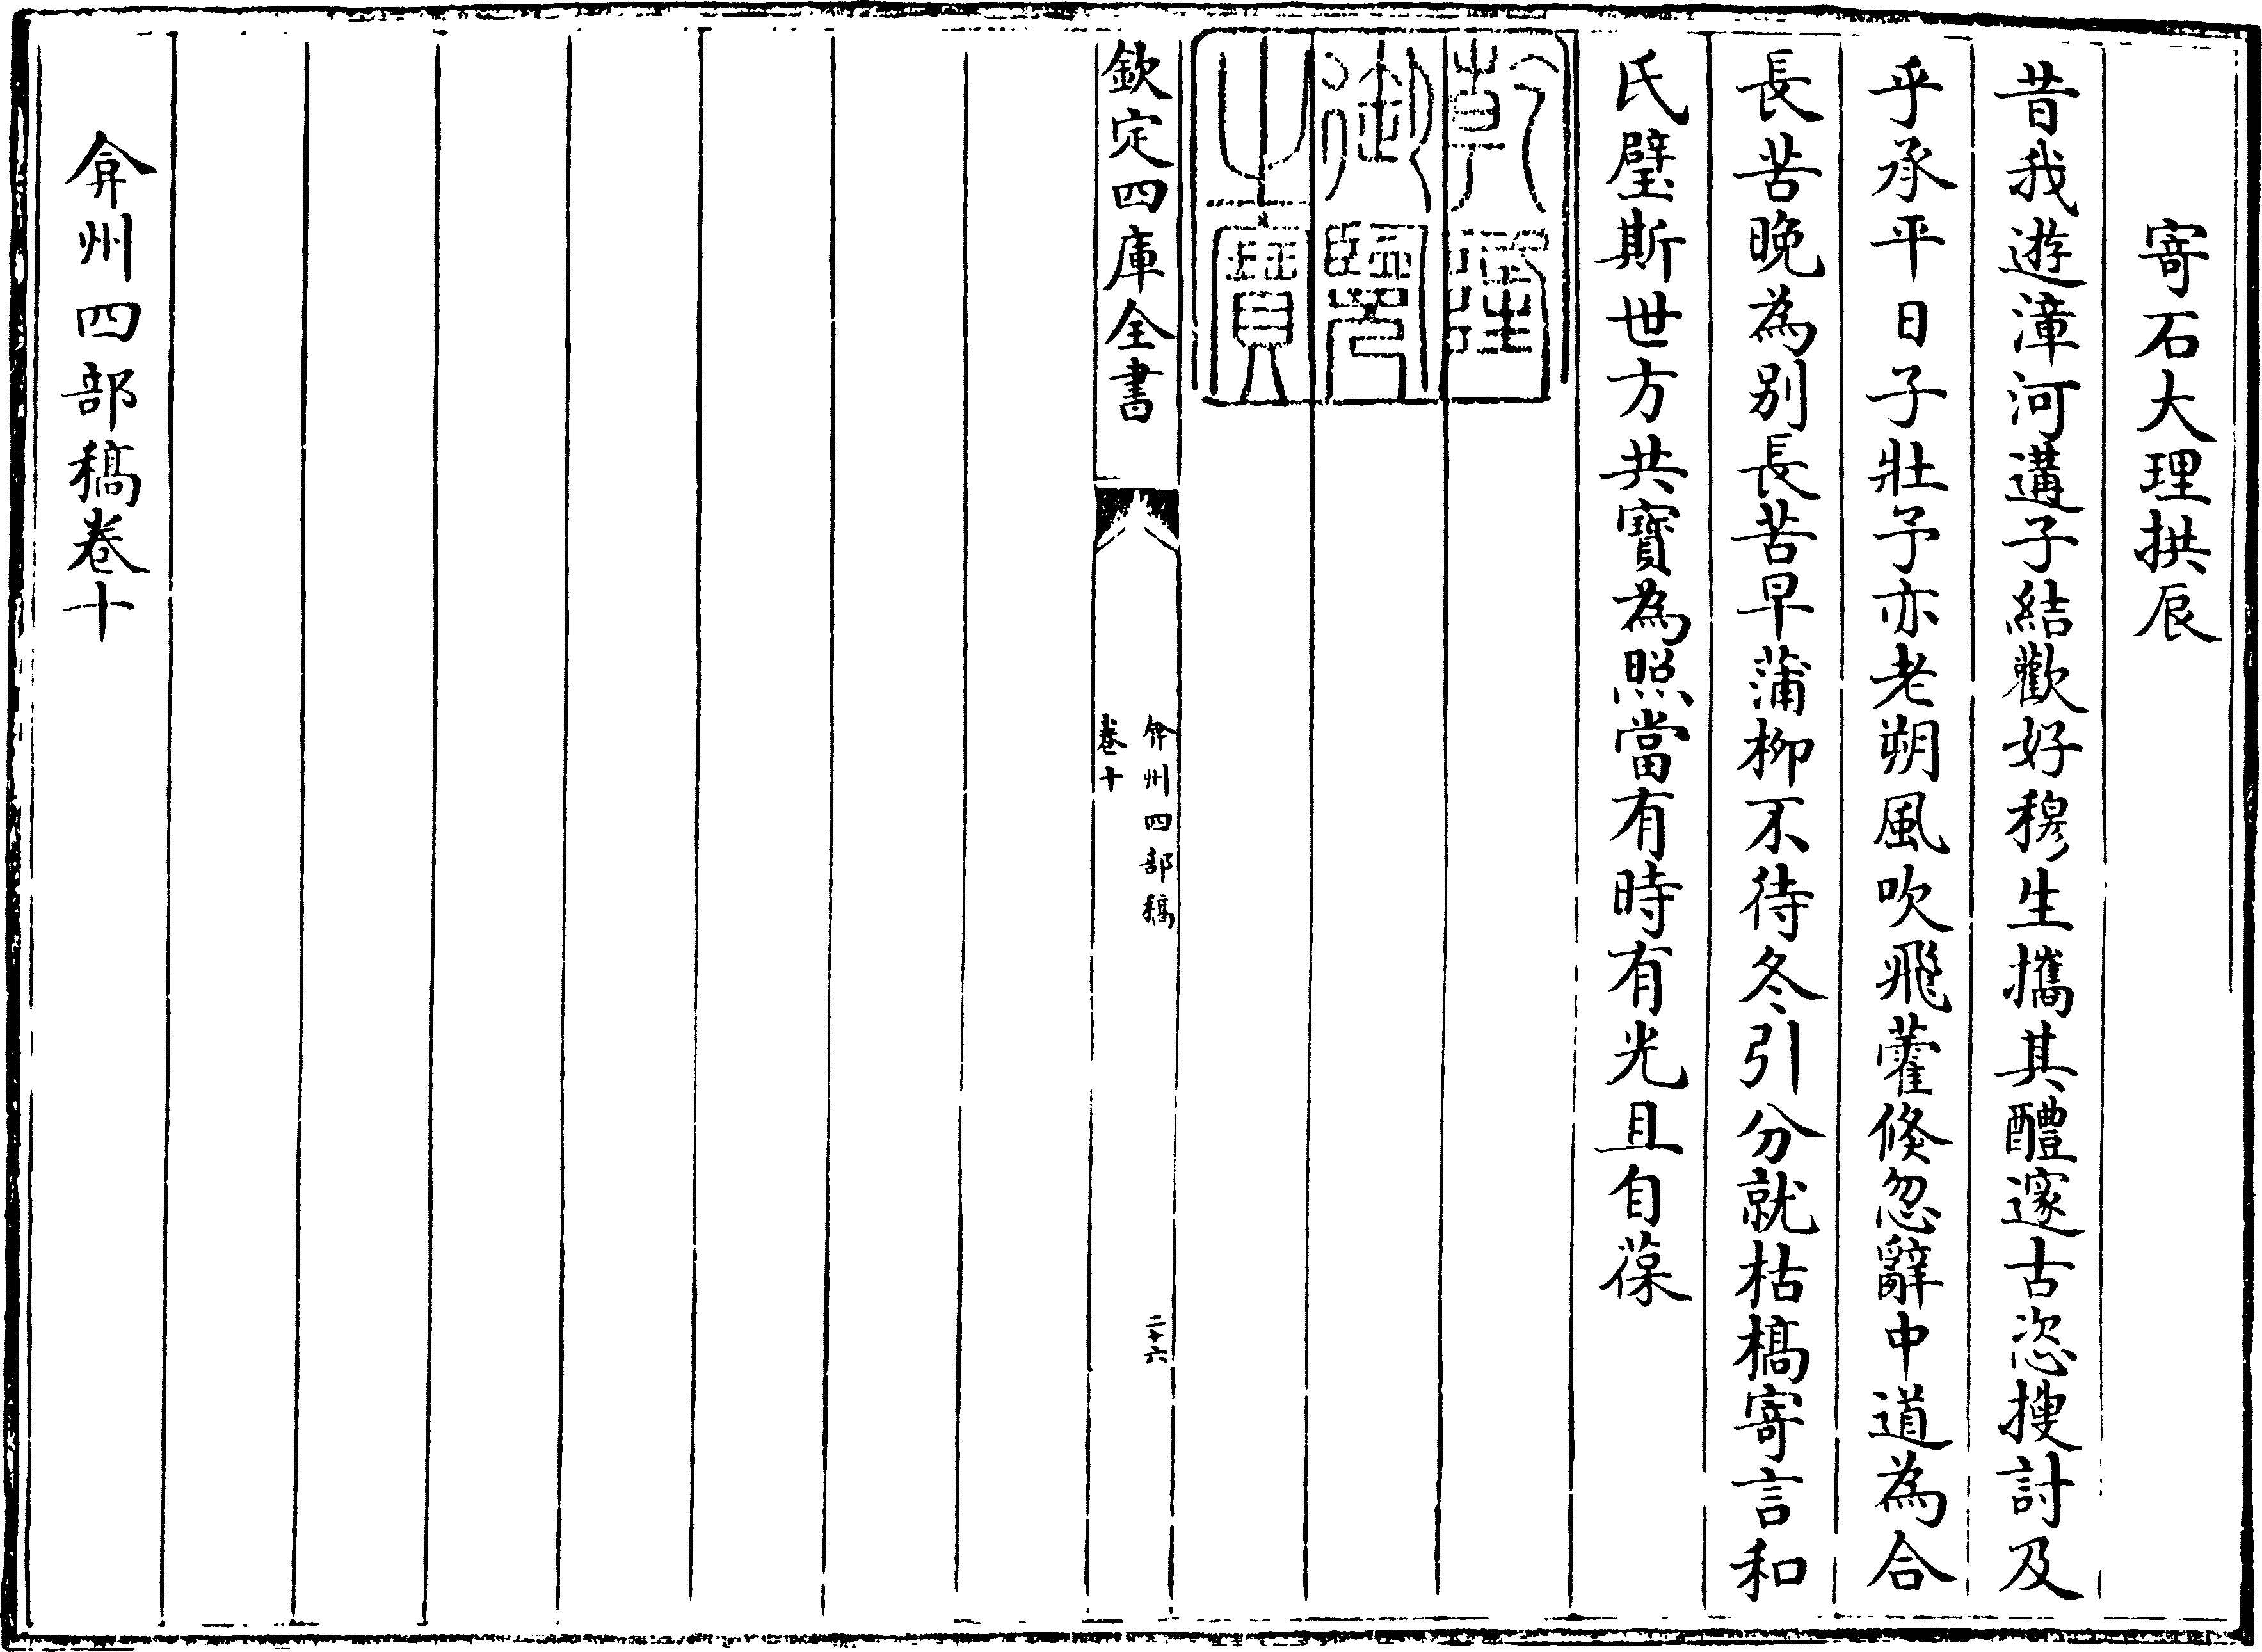 寄石大理拱辰
昔我遊漳河遘子結歡好穆生攜其醴邃古恣搜討及
乎承平日子壯予亦老朔風吹飛藿倐忽辭中道為合
長苦晚為別長苦早蒲柳不待冬引分就枯槁寄言和
氏璧斯世方共寶為照當有時有光且自葆
乾隆
御覽
之寶
欽定四庫全書
弇州四部稿
卷十
二十六
弇州四部稿卷十